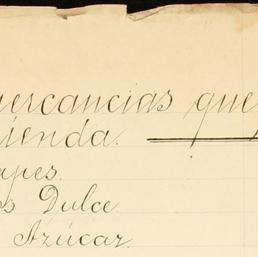 mercancias que
ienda.
apes.
os Dulce.
Azúcar.